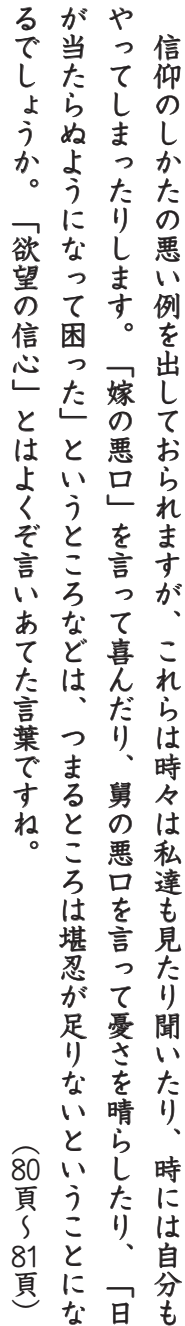 信仰のしかたの悪い例を出しておられますが、これらは時々は私達も見たり聞いたり、時には自分も
やってしまったりします。「嫁の悪口」を言って喜んだり、舅の悪口を言って憂さを晴らしたり、「日
が当たらぬようになって困った」というところなどは、つまるところは堪忍が足りないということにな
るでしょうか。「欲望の信心」とはよくぞ言いあてた言葉ですね。
（80頁～81頁）